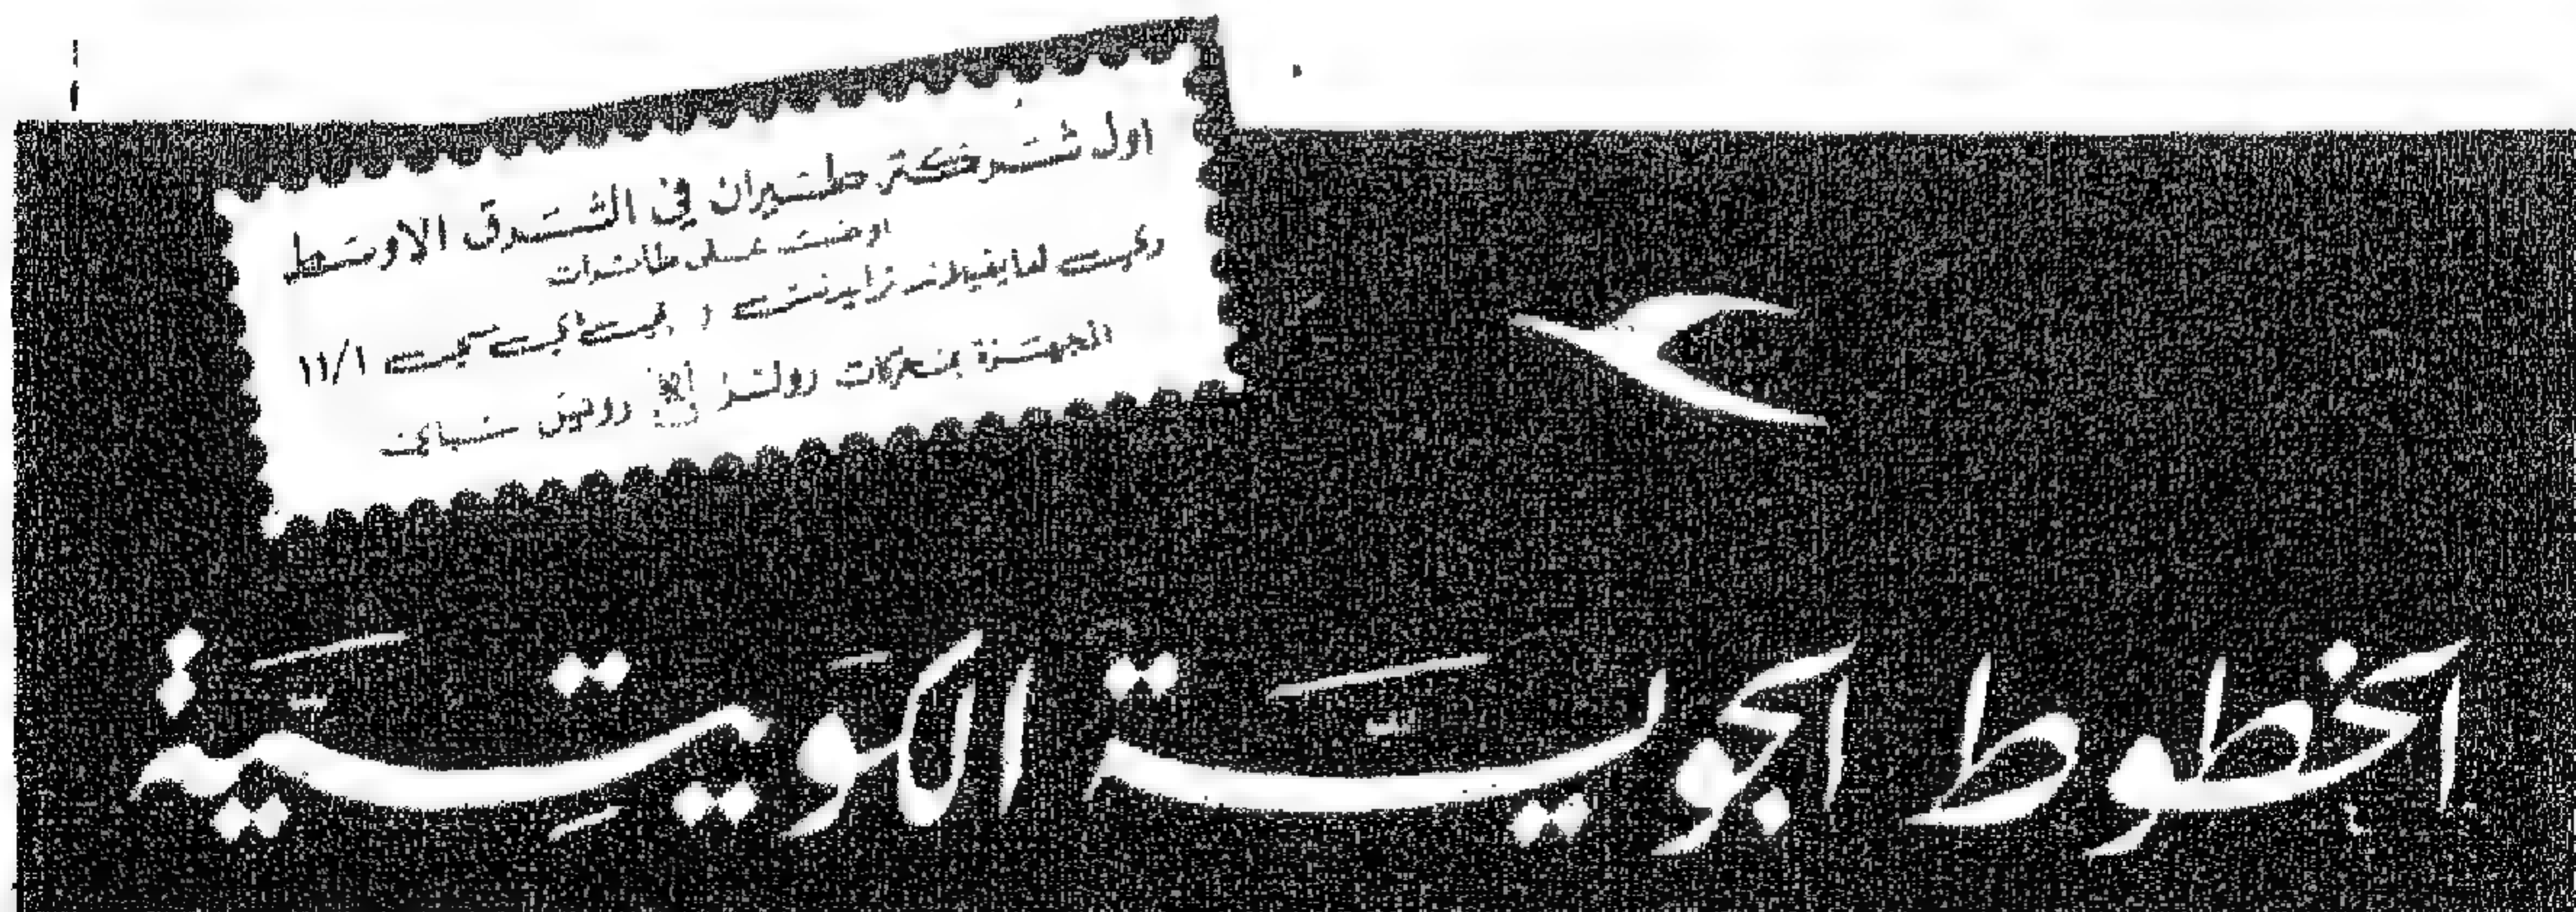 اول شركة طيران في الشرق الاوسط
اوصت على طائرات
دي هافيلاند ترايدنت و بي اي سي ١١/١
المجهزة بمحركات رولز رويس سباي
الخطوط الجوية الكويتية